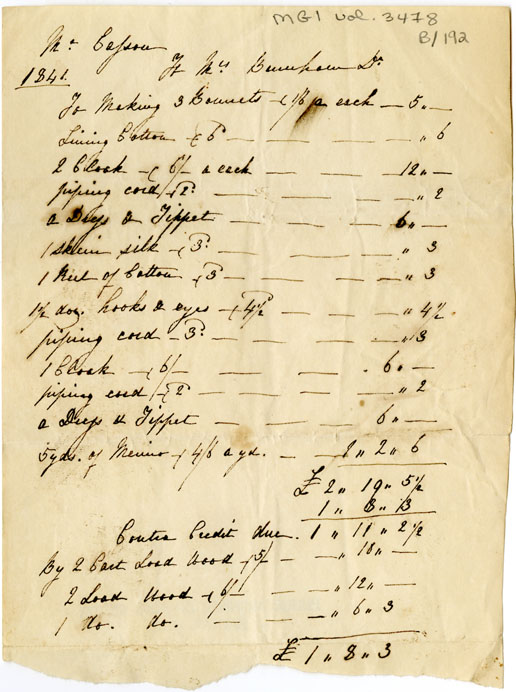 MG1 vol. 3478
B/192
Mr Casson
1841. To Mrs Dr
To Making 3 Bonnets @ 1/8 a each — 5 „ —
Lining Cotton @ 6d — — — — „ 6
2 Cloak @ 6/- a each — — 12 „ —
piping cord @ 2d. — — — — „ 2
a Dress & Tippet — — — — 6 „ —
1 skein silk @ 3d. — — — — „ 3
1 Reel of Cotton @ 3 — — — — „ 3
1½ doz. hooks & eyes @ 4½ — — — „ 4½
piping cord @ 3d. — — — — „ 3
1 Cloak @ 6/- — — — — 6 „ —
piping cord @ 2 — — — — „ 2
a Dress & Tippet — — — — 6 „ —
5 yds. of Merino @ 4/6 a yd. — — 2 „ 6
£ 2 „ 19 „ 5½
1 „ 8 „ 3
Contra Credit due. 1 „ 11 „ 2½
By 2 Cart Load Wood @ 5/- — „ 10 „ —
2 Load Wood @ 6/- — — „ 12 „ —
1 do. do. — — — „ 6 „ 3
£ 1 „ 8 „ 3